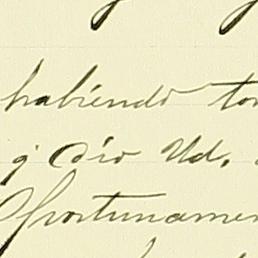 habiendo to
q dió Ud.
Oportuname